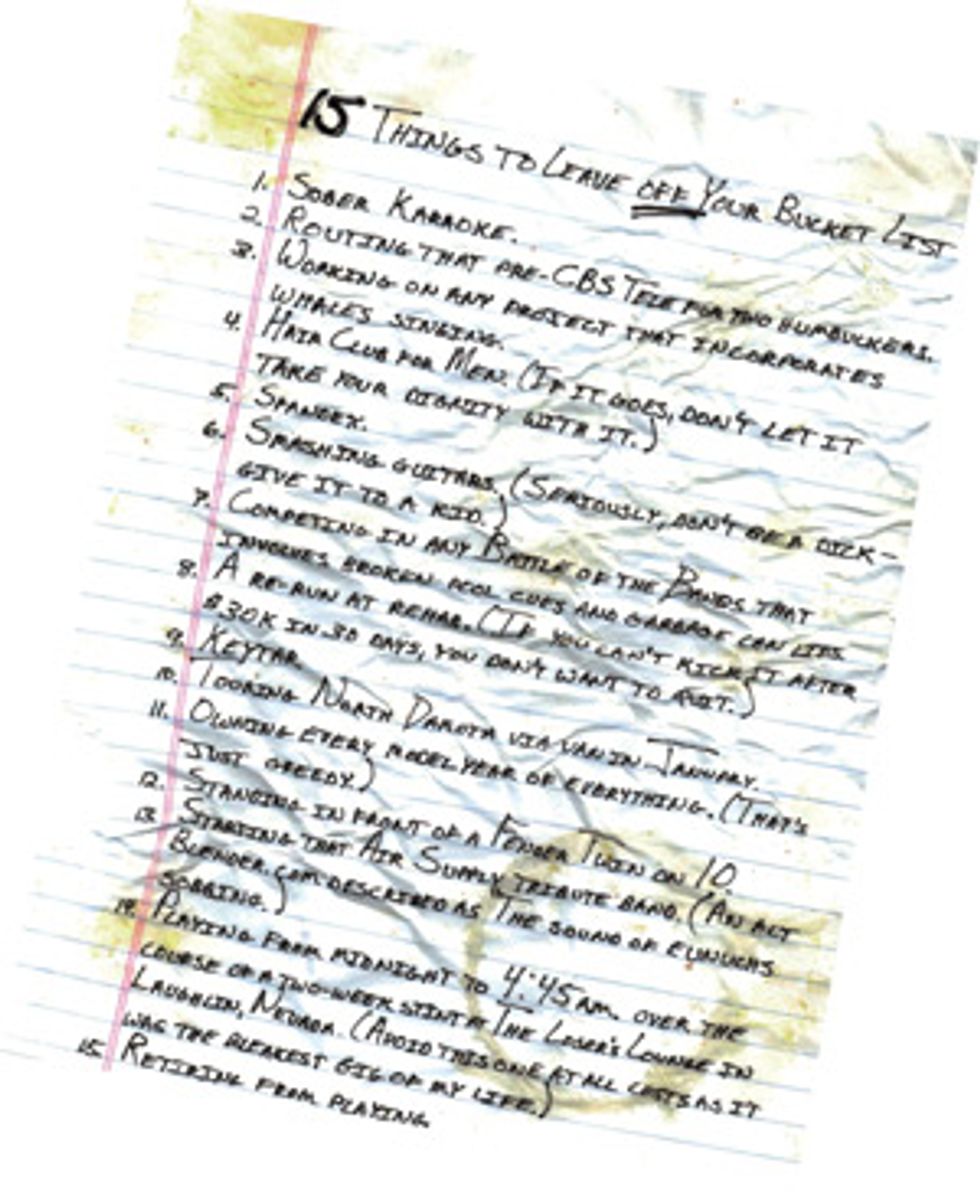 15 THINGS TO LEAVE OFF YOUR BUCKET LIST
1. SOBER KARAOKE.
2. ROUTING THAT PRE-CBS TELE FOR TWO HUMBUCKERS.
3. WORKING ON ANY PROJECT THAT INCORPORATES
WHALES SINGING.
4. HAIR CLUB FOR MEN. (IF IT GOES, DON'T LET IT
TAKE YOUR DIGNITY WITH IT.)
5. SPANDEX.
6. SMASHING GUITARS. (SERIOUSLY, DON'T BE A DICK-
GIVE IT TO A KID.)
7. COMPETING IN ANY BATTLE OF THE BANDS THAT
INVOLVES BROKEN POOL CUES AND GARBAGE CAN LIDS.
8. A RE-RUN AT REHAB. (IF YOU CAN'T KICK IT AFTER
$30K IN 30 DAYS, YOU DON'T WANT TO QUIT.)
9. KEYTAR
10. TOURING NORTH DAKOTA VIA VAN IN JANUARY.
11. OWNING EVERY MODEL YEAR OF EVERYTHING. (THAT'S
JUST GREEDY.)
12. STANDING IN FRONT OF A FENDER TWIN ON 10.
13. STARTING THAT AIR SUPPLY TRIBUTE BAND. (AN ACT
BLENDER.COM DESCRIBED AS THE SOUND OF EUNUCHS
SOBBING.)
14. PLAYING FROM MIDNIGHT TO 4:45AM. OVER THE
COURSE OF A TWO-WEEK STINT AT THE LOSER'S LOUNGE IN
LAUGHLIN, NEVADA. (AVOID THIS ONE AT ALL COSTS AS IT
WAS THE BLEAKEST GIG OF MY LIFE.)
15. RETIRING FROM PLAYING